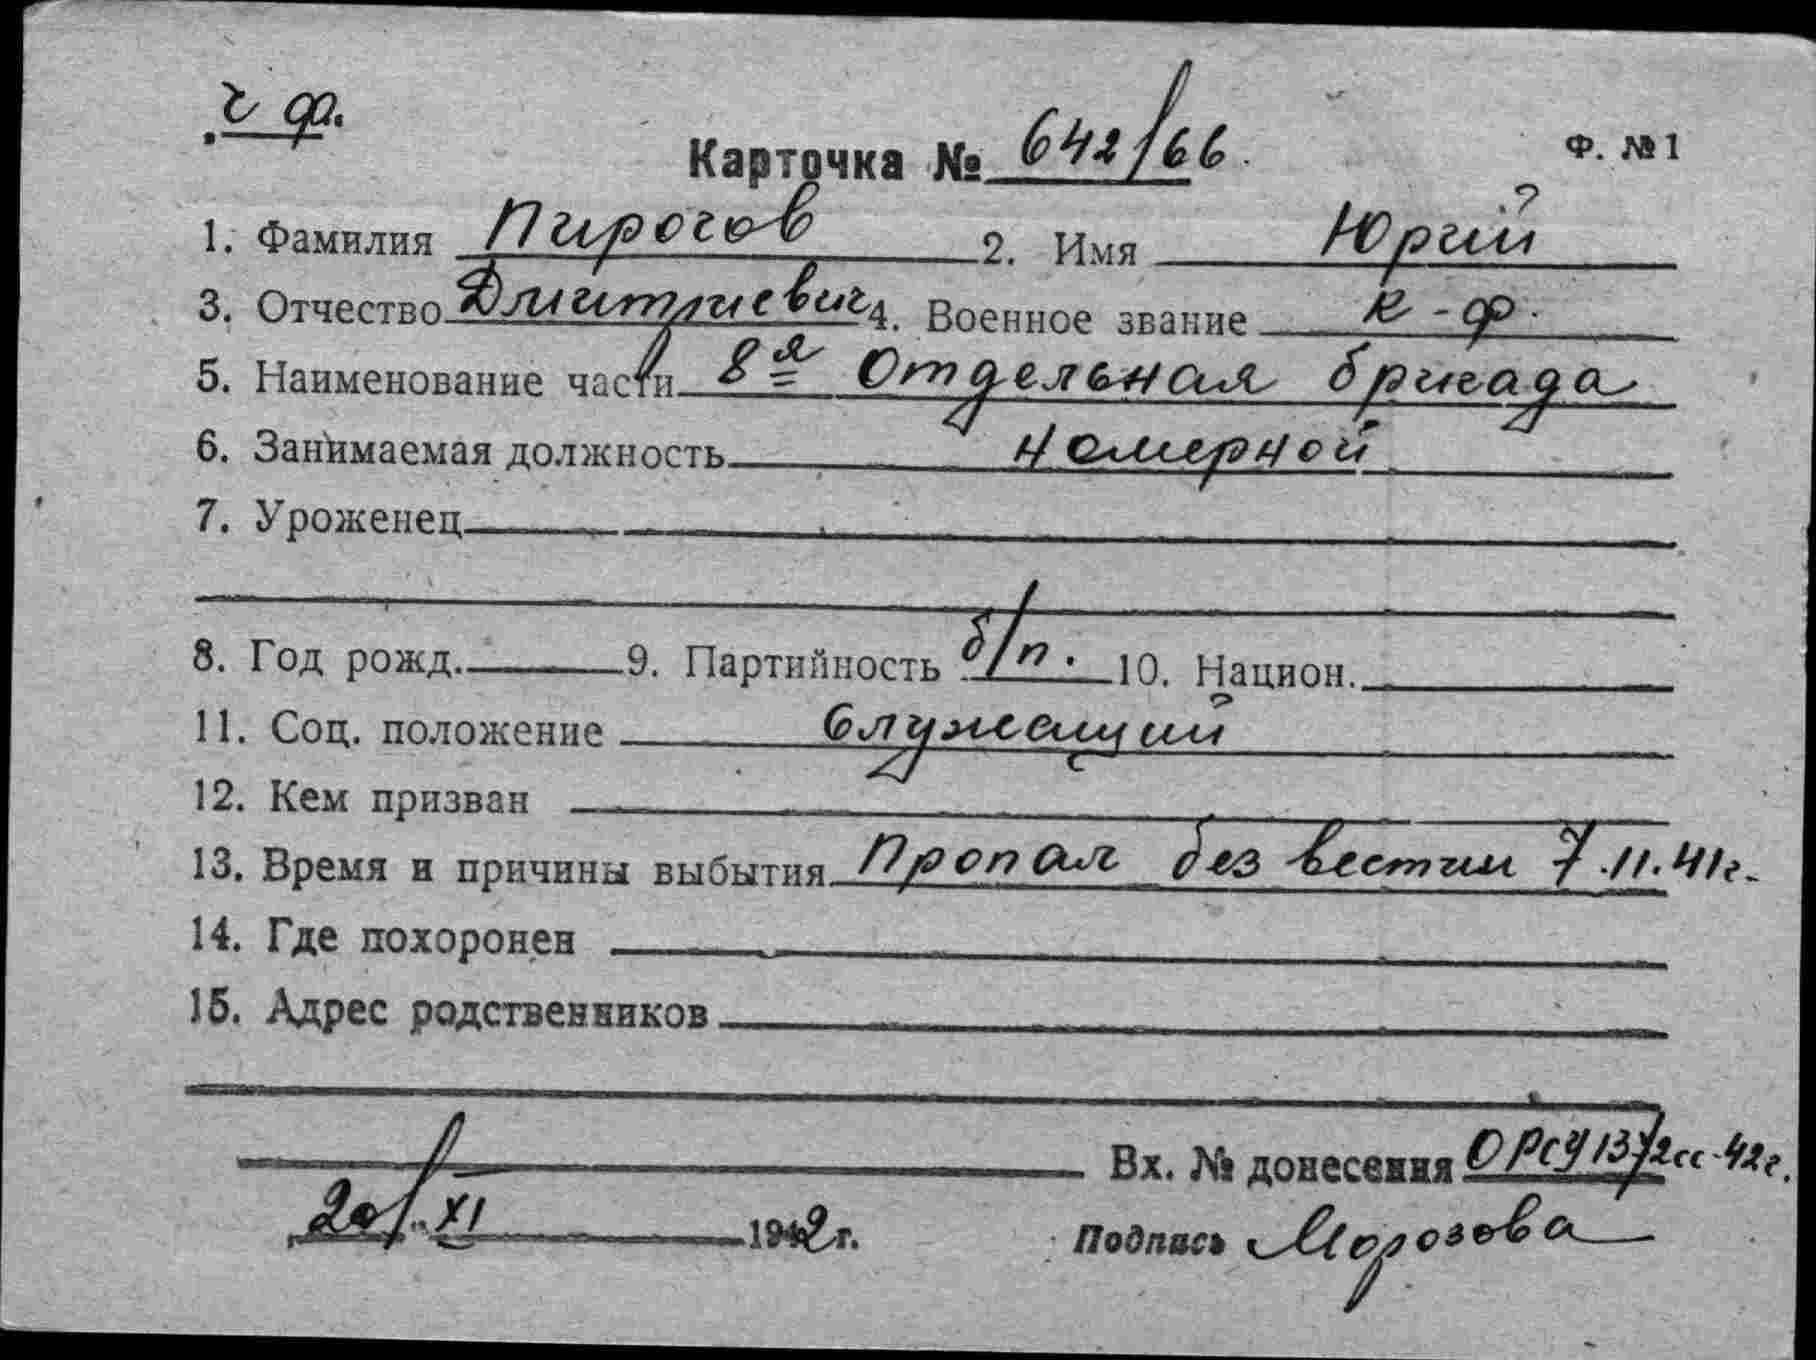 ч ф.
Карточка № 642/66.
Ф. № 1
1. Фамилия Пирогов 2. Имя Юрий
3. Отчество Дмитриевич 4. Военное звание к-ф.
5. Наименование части 8я Отдельная бригада
6. Занимаемая должность номерной
7. Уроженец
8. Год рожд. 9. Партийность б/п. 10. Национ.
11. Соц. положение Служащий
12. Кем призван
13. Время и причины выбытия Пропал без вестии 7.11.41г.
14. Где похоронен
15. Адрес родственников
Вх. № донесения ОРСУ 1372сс-42г.
20/XI 1942г.
Подпись Морозова